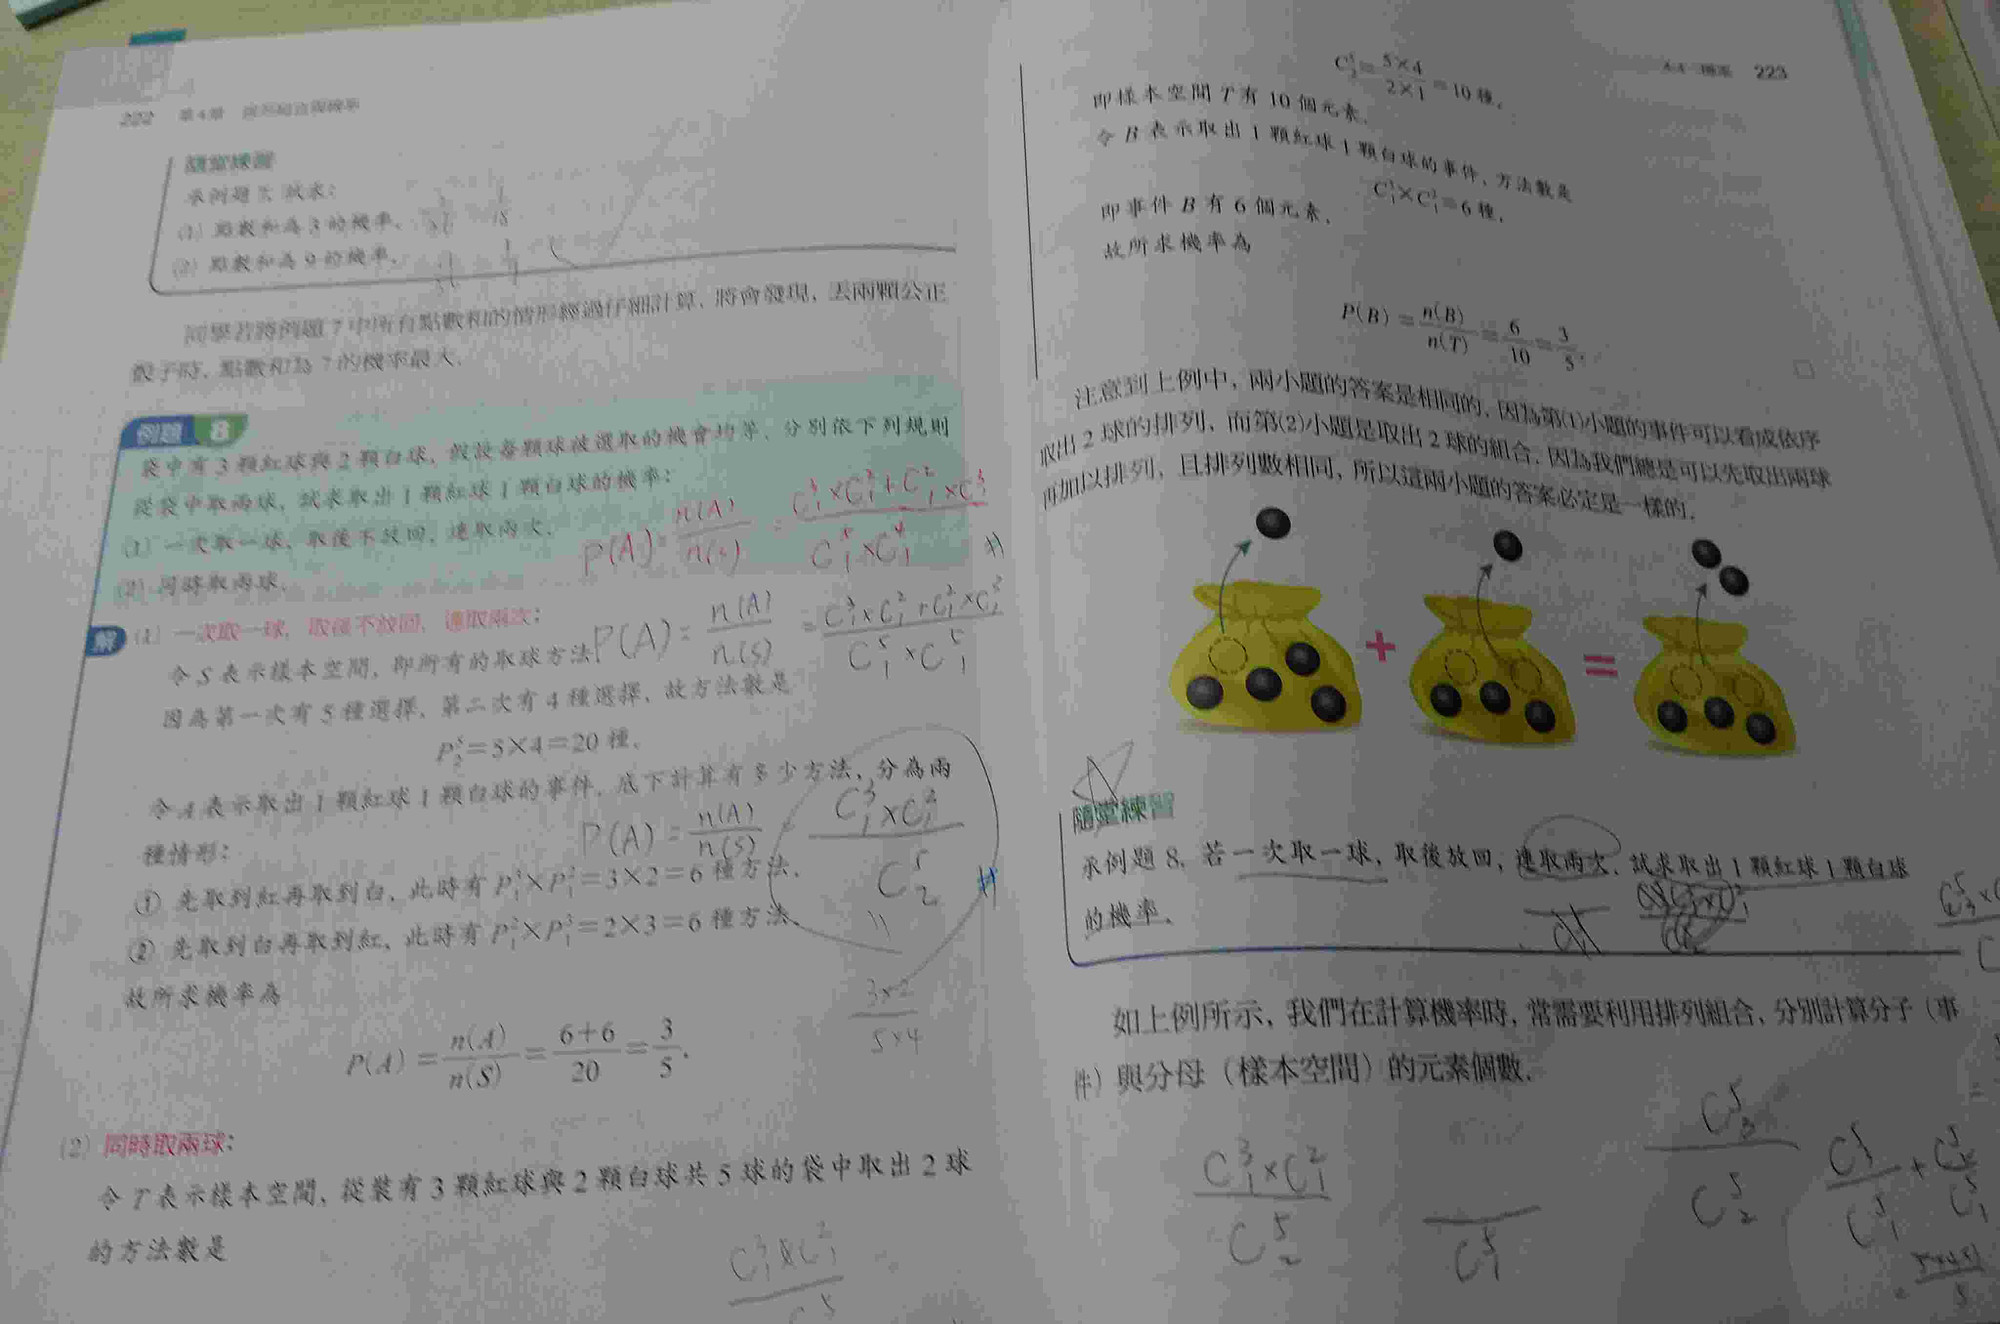 222 第4章 排列組合與機率
隨堂練習
承例題 7, 試求:
(1) 點數和為 3 的機率.
(2) 點數和為 9 的機率.
同學若將例題 7 中所有點數和的情形經過仔細計算, 將會發現, 丟兩顆公正
骰子時, 點數和為 7 的機率最大.
例題 8
袋中有 3 顆紅球與 2 顆白球, 假設每顆球被選取的機會均等, 分別依下列規則
從袋中取兩球, 試求取出 1 顆紅球 1 顆白球的機率:
(1) 一次取一球, 取後不放回, 連取兩次.
(2) 同時取兩球.
P(A)=n(A)/n(S)=C³₁×C²₁+C²₁×C³₁/C⁵₁×C⁴₁
解 (1) 一次取一球, 取後不放回, 連取兩次:
P(A)=n(A)/n(S)=C³₁×C²₁+C²₁×C³₁/C⁵₁×C⁵₁
令 S 表示樣本空間, 即所有的取球方法
因為第一次有 5 種選擇, 第二次有 4 種選擇, 故方法數是
P⁵₂=5×4=20 種.
令 A 表示取出 1 顆紅球 1 顆白球的事件, 底下計算有多少方法, 分為兩
種情形:
P(A)=n(A)/n(S) C³₁×C²₁/C⁵₂
① 先取到紅再取到白, 此時有 P³₁×P²₁=3×2=6 種方法.
② 先取到白再取到紅, 此時有 P²₁×P³₁=2×3=6 種方法.
故所求機率為
3×2/5×4
P(A)=n(A)/n(S)=6+6/20=3/5.
(2) 同時取兩球:
令 T 表示樣本空間, 從裝有 3 顆紅球與 2 顆白球共 5 球的袋中取出 2 球
的方法數是
4-4 機率 223
C⁵₂=5×4/2×1=10 種,
即樣本空間 T 有 10 個元素.
令 B 表示取出 1 顆紅球 1 顆白球的事件, 方法數是
C³₁×C²₁=6 種,
即事件 B 有 6 個元素.
故所求機率為
P(B)=n(B)/n(T)=6/10=3/5.
注意到上例中, 兩小題的答案是相同的, 因為第(1)小題的事件可以看成依序
取出 2 球的排列, 而第(2)小題是取出 2 球的組合. 因為我們總是可以先取出兩球
再加以排列, 且排列數相同, 所以這兩小題的答案必定是一樣的.
+ =
隨堂練習
承例題 8, 若一次取一球, 取後放回, 連取兩次, 試求取出 1 顆紅球 1 顆白球
的機率.
如上例所示, 我們在計算機率時, 常需要利用排列組合, 分別計算分子 (事
件) 與分母 (樣本空間) 的元素個數.
C³₁×C²₁/C⁵₂ C⁵₁ C⁵₃/C⁵₂